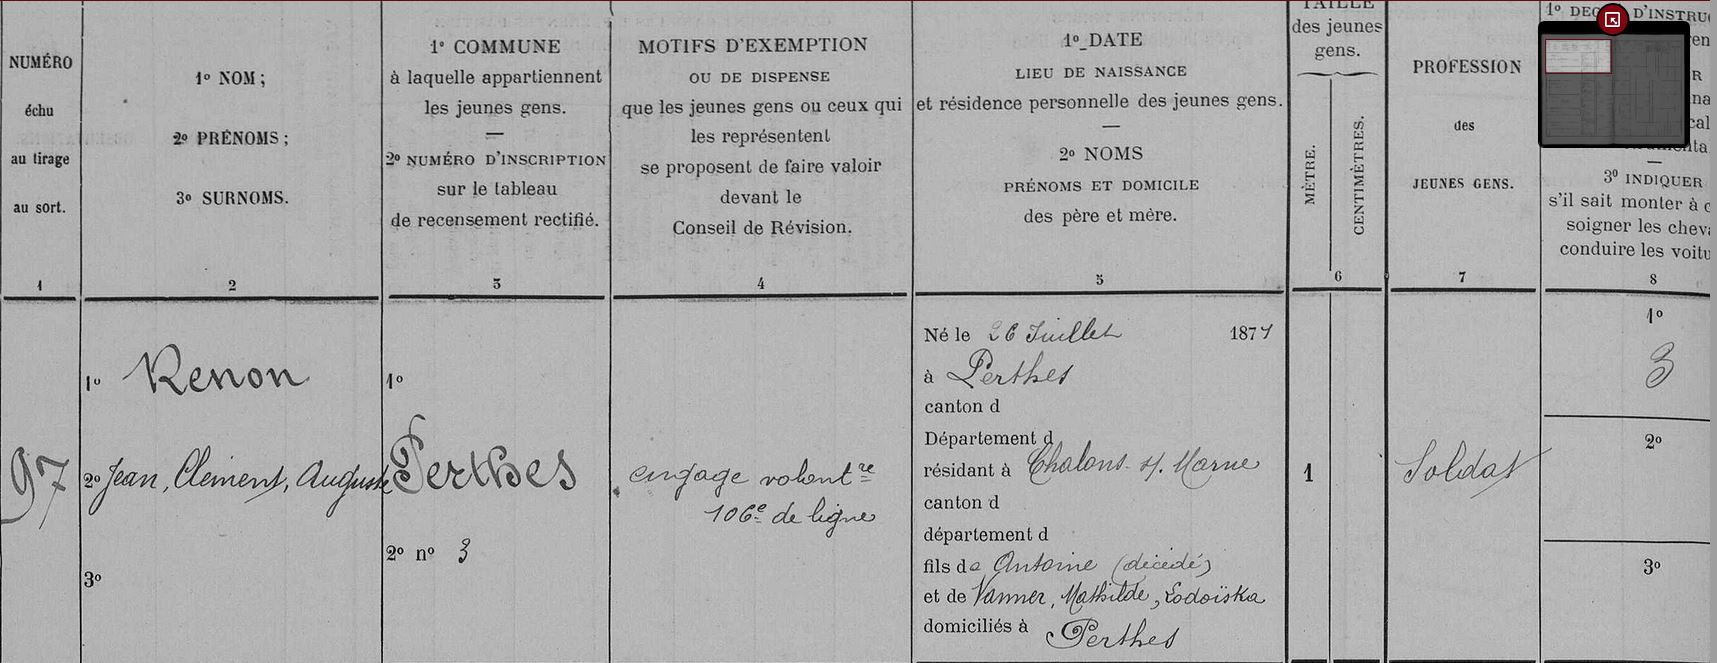 NUMÉRO
échu
au tirage
au sort.
1
1º NOM ;
2º PRÉNOMS ;
3º SURNOMS.
2
1º COMMUNE
à laquelle appartiennent
les jeunes gens.
2º NUMÉRO D'INSCRIPTION
sur le tableau
de recensement rectifié.
3
MOTIFS D'EXEMPTION
OU DE DISPENSE
que les jeunes gens ou ceux qui
les représentent
se proposent de faire valoir
devant le
Conseil de Révision.
4
1º DATE
LIEU DE NAISSANCE
et résidence personnelle des jeunes gens.
2º NOMS
PRÉNOMS ET DOMICILE
des père et mère.
5
TAILLE
des jeunes
gens.
MÈTRE.
CENTIMÈTRES.
6
PROFESSION
des
JEUNES GENS.
7
1º D'INSTRU
3º INDIQUER
s'il sait monter à c
soigner les chev
conduire les voitu
8
97
1º Renon
2º Jean, Clément, Auguste
3º
1º
Perthes
2º nº 3
engagé volontre
106e de ligne
Né le 26 Juillet 1877
à Perthes
canton d
Département d
résidant à Chalons s/. Marne
canton d
département d
fils de Antoine (décédé)
et de Vanner, Mathilde, Lodoïska
domiciliés à Perthes
1
Soldat
1º
3
2º
3º